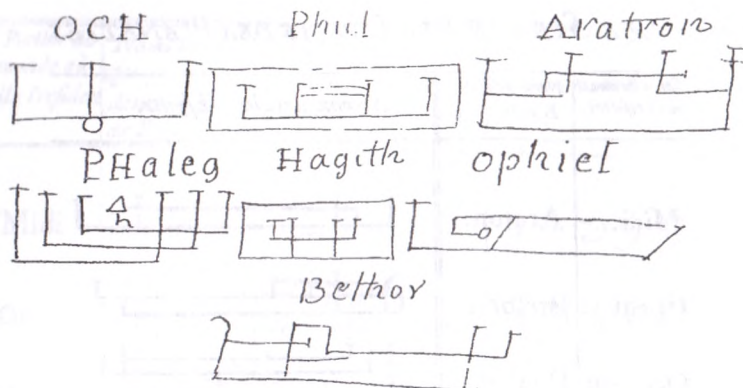 OCH Phul Aratron
PHaleg Hagith Ophiel
Bethor